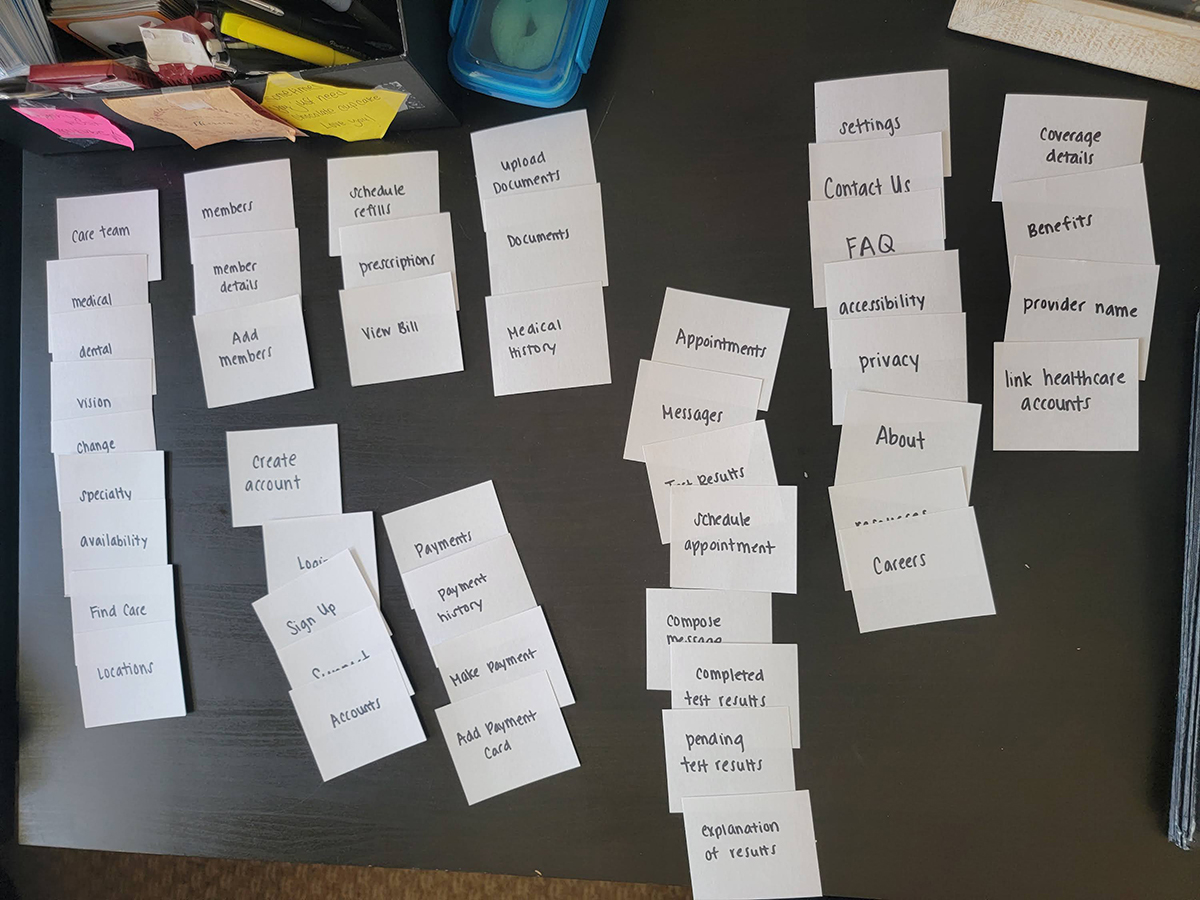 you just need
chocolate cupcake
Love you!
Care team
medical
dental
vision
change
specialty
availability
Find Care
Locations
members
member
details
Add
members
schedule
refills
prescriptions
View Bill
upload
Documents
Documents
Medical
History
create
account
Sign Up
Accounts
Payments
Payment
history
Make Payment
Add Payment
Card
Appointments
Messages
Test Results
schedule
appointment
compose
message
completed
test results
pending
test results
explanation
of results
settings
Contact Us
FAQ
accessibility
privacy
About
Careers
Coverage
details
Benefits
provider name
link healthcare
accounts